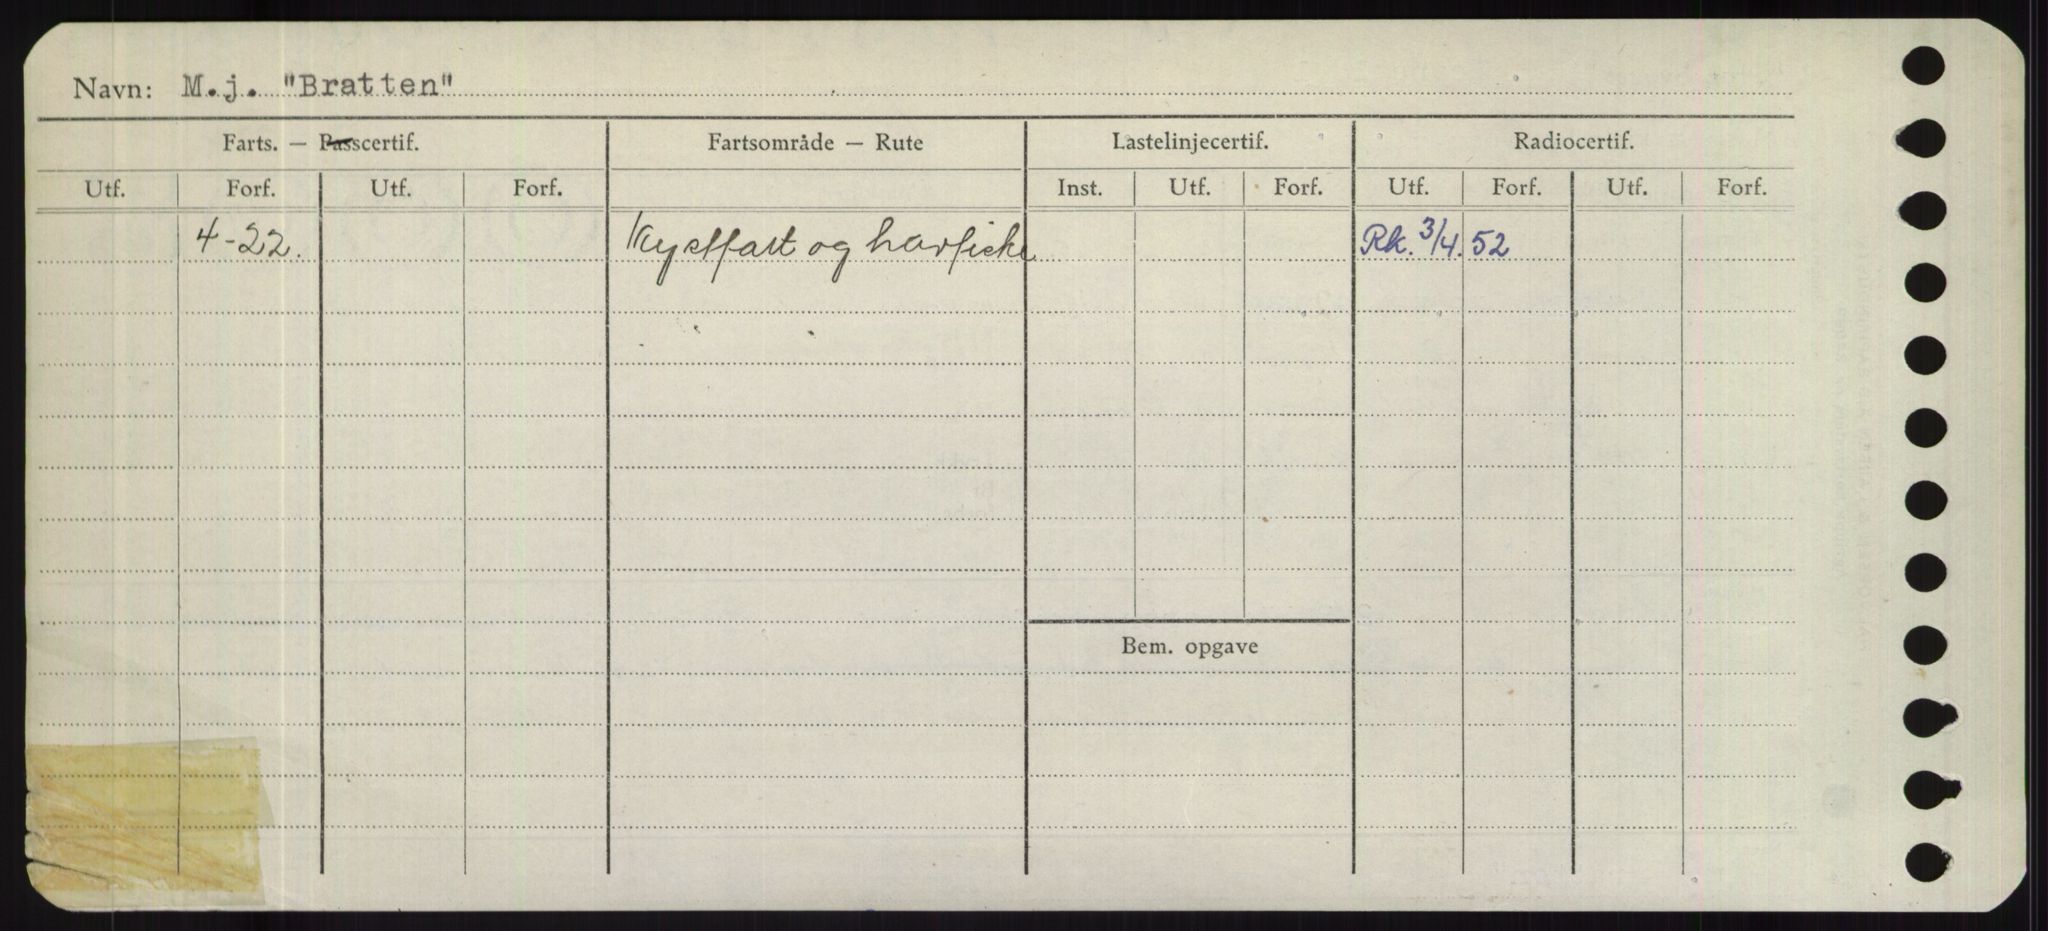 Navn: M.j. "Bratten"
Farts. — Passcertif. Fartsområde — Rute Lastelinjecertif. Radiocertif.
Utf. Forf. Utf. Forf. Inst. Utf. Forf. Utf. Forf. Utf. Forf.
4-22. Kystfart og havfiske Rk. 3/4.52
Bem. opgave